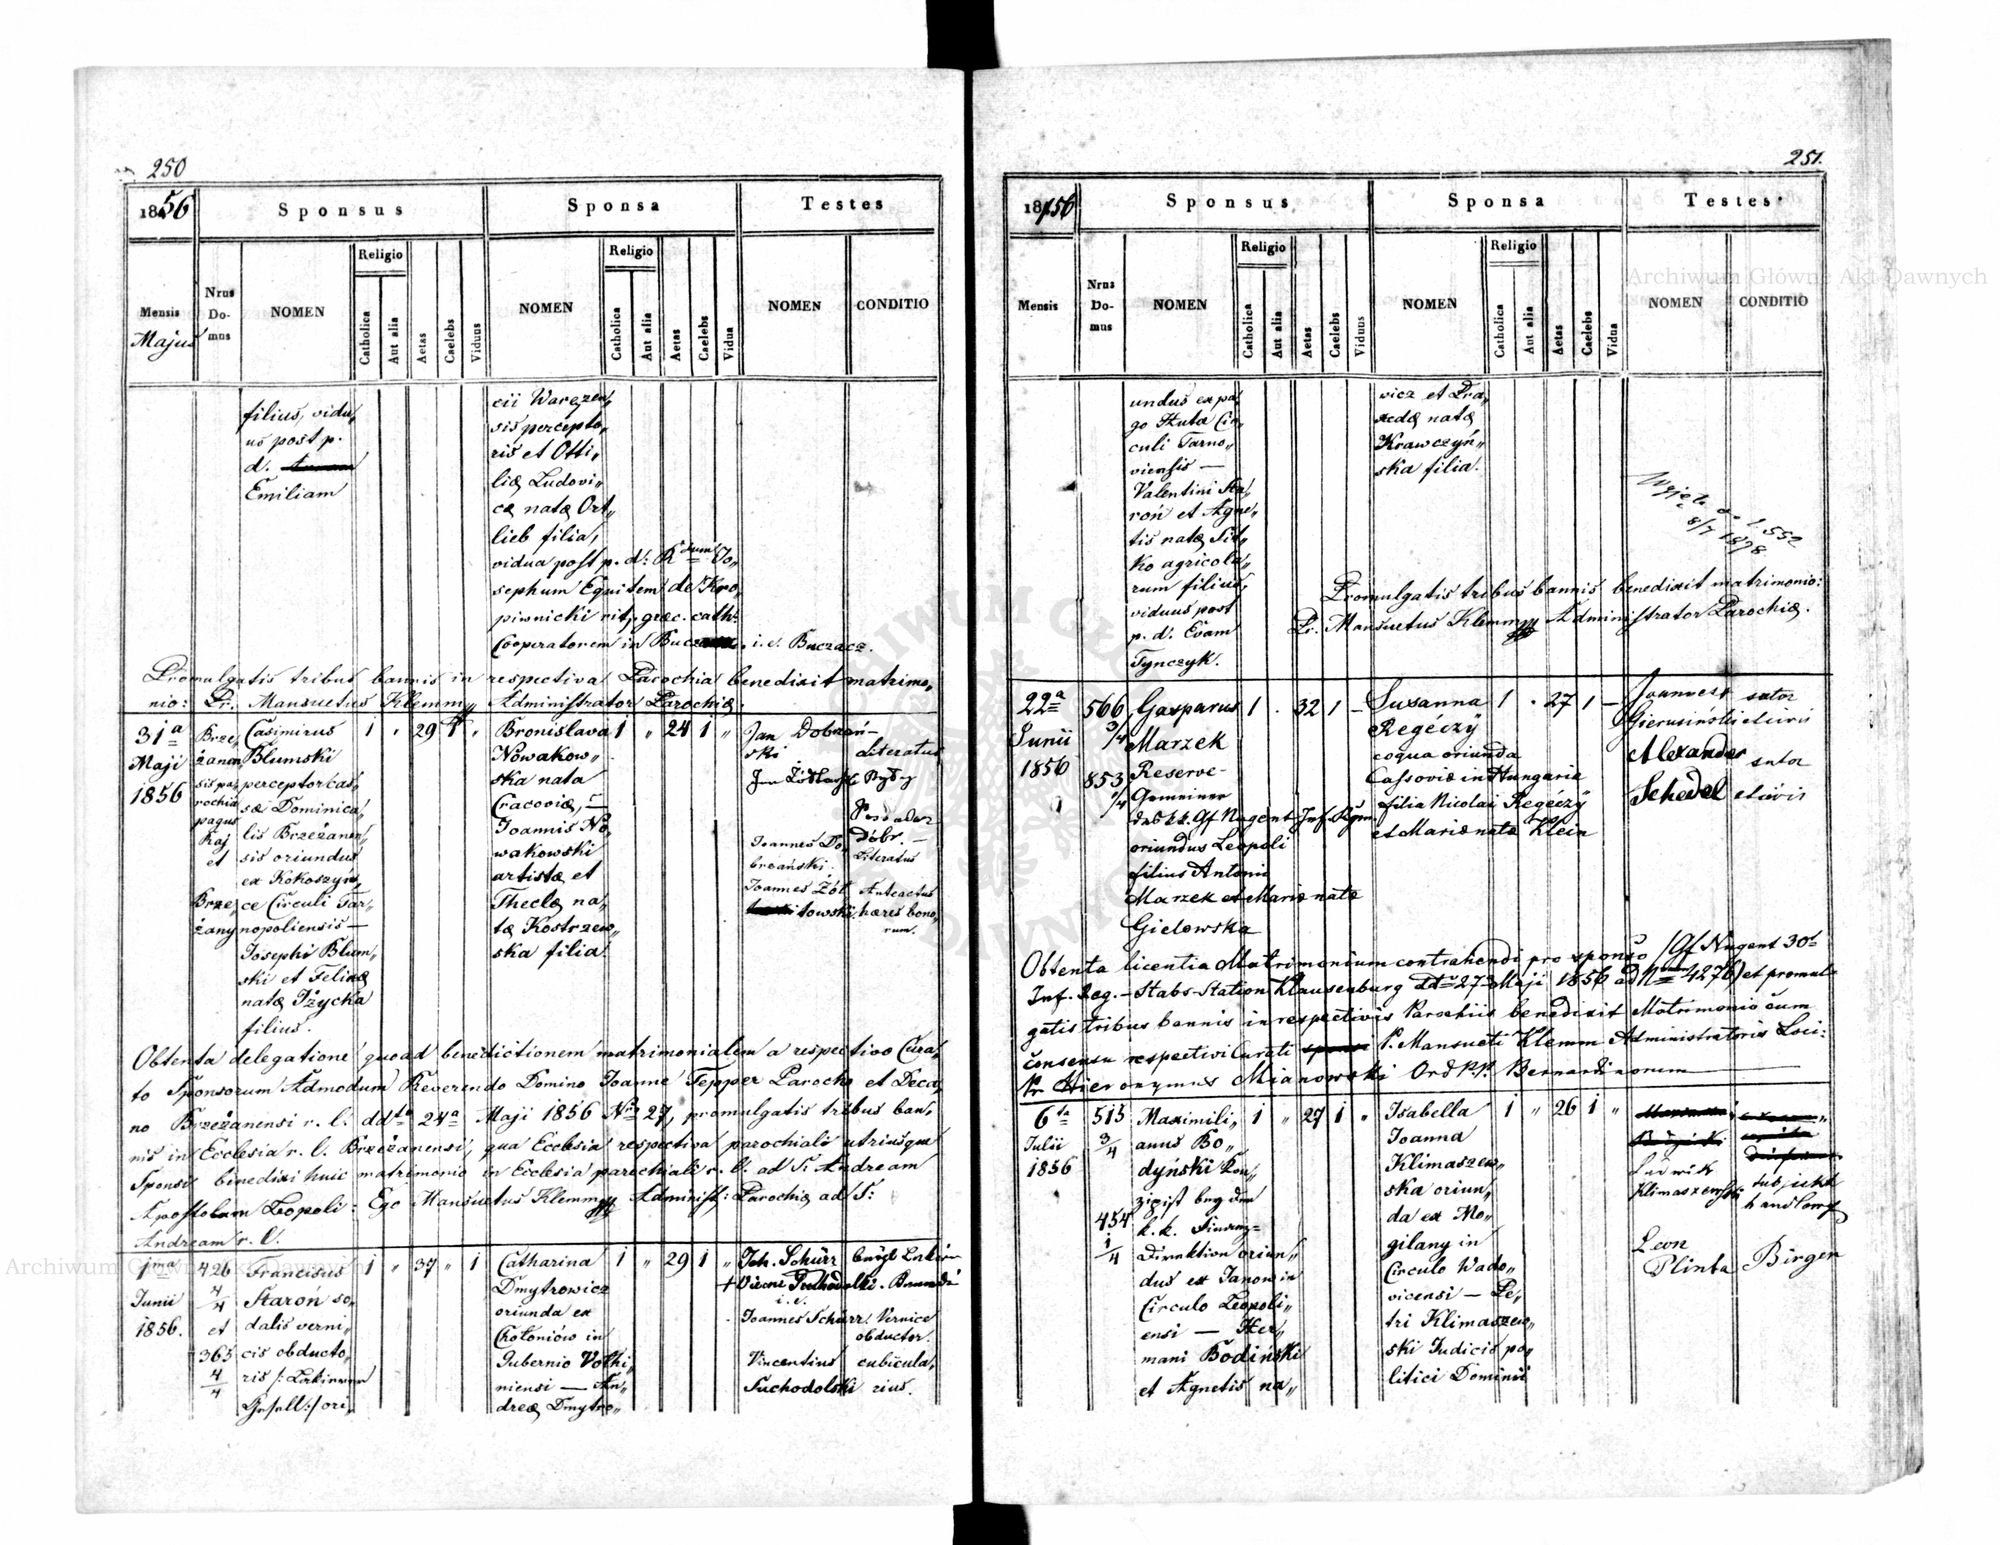 250
1856
Sponsus
Sponsa
Testes
Mensis
Majus
Nrus
Do-
mus
NOMEN
Religio
Catholica
Aut alia
Aetas
Caelebs
Viduus
NOMEN
Religio
Catholica
Aut alia
Aetas
Caelebs
Vidua
NOMEN
CONDITIO
filius, vidu„
us post p.
d.
Emiliam
cii Waręzen„
sis percepto„
ris et Otti„
liæ Ludovi„
cæ natæ Ort„
lieb filia,
vidua post p. d: Rdum Jo„
sephum Equitem de Kro„
piwnicki rit, græc. cath:
Cooperatorem in Bucz i. e. Buczacz.
Promulgatis tribus bannis in respectiva Parochia benedixit matrimo„
nio: Pr. Mansuetus Klemm Administrator Parochiæ.
31a
Maji
1856
Brze„
żanen
sis pa„
rochia
pagus
Raj
et
Brze„
żany
Casimirus
Blumski
perceptor cas„
sæ Dominica„
lis Brzeżanen„
sis oriundus
ex Kokoszyń„
ce Circuli Tar„
nopoliensis —
Josephi Blum„
ski et Felicæ
natæ Iżycka
filius.
1 „ 29 1 „
Bronislava
Nowakow„
ska nata
Cracoviæ, —
Joannis No„
wakowski
artistæ et
Theclæ na„
tæ Kostrzew„
ska filia.
1 „ 24 1 „
Jan Dobrzań—
ski
Literatus
Joannes Do„
brzański.
Literatus
Joannes Żół
towski
Anteactus
hæres bono„
rum.
Obtenta delegatione quoad benedictionem matrimonialem a respectivo Cura„
to Sponsorum Admodum Reverendo Domino Joanne Tepper Parocho et Deca„
no Brzeżanensi r. l. ddto 24a Maji 1856 Nr 27, promulgatis tribus ban„
nis in Ecclesia r. l. Brzeżanensi, qua Ecclesia respectiva parochiali utriusque
Sponsi benedixi huic matrimonio in Ecclesia parochiali r. l. ad S. Andream
Apostolum Leopoli: Ego Mansuetus Klemm Administ: Parochiæ ad S:
Andream r. l.
1ma
Junii
1856.
426
4/4
et
365
4/4
Franciscus
Staroń so„
dalis verni„
cis obducto„
ris /: Lakierer
Gesell:/ ori„
1 „ 37 „ 1
Catharina
Dmytrowicz
oriunda ex
Chołoniów in
Gubernio Volhi„
niensi — An„
dreæ Dmytro„
1 „ 29 1 „
Joh. Schürr
i. e.
Joannes Schürr
Vernice
obductor.
Vincentius
Suchodolski
cubicula„
rius.
251.
1856
Sponsus
Sponsa
Testes
Mensis
Nrus
Do-
mus
NOMEN
Religio
Catholica
Aut alia
Aetas
Caelebs
Viduus
NOMEN
Religio
Catholica
Aut alia
Aetas
Caelebs
Vidua
NOMEN
CONDITIO
undus ex pa„
go Huta Cir„
culi Tarno„
viensis —
Valentini Sta„
roń et Agne„
tis natæ Sit„
ko agricola„
rum filius,
viduus post
p. d. Evam
Tynczyk.
wicz et Pra„
xedæ natæ
Krawczyń„
ska filia.
8/7 1898
Promulgatis tribus bannis benedixit matrimonio:
Pr. Mansuetus Klemm Administrator Parochiæ.
22a
Junii
1856
566
3/4
853
1/4
Gasparus
Marzek
Reserve-
Gemeiner
des k.k. Gf Nugent Inf. Rgm
oriundus Leopoli
filius Antonii
Marzek et Mariæ natæ
Gielowska
1 . 32 1 —
Susanna
Regéczÿ
coqua oriunda
Cassoviæ in Hungaria
filia Nicolai Regéczÿ
et Mariæ natæ Klein
1 . 27 1 —
Joannes
Gierusiński
sutor
et civis
Alexander
Schedel
sutor
et civis
Obtenta licentia Matrimonium contrahendi pro sponso /Gf Nugent 30t
Inf. Reg. — Stabs Station Klausenburg ddto 27 Maji 1856 ad Nrum 4276) et promul-
gatis tribus bannis in respectivis Parochiis benedixit Matrimonio cum
consensu respectivi Curati P. Mansueti Klemm Administratoris Loci:
Pr Hieronymus Mianowski Ord P.P. Bernardinorum
6ta
Julii
1856
515
3/4
454
1/4
Maximili„
anus Bo„
dyński Kon„
zipist bey der
k. k. Finanz-
Direktion oriun„
dus ex Janow in
Circulo Leopoli„
ensi — Her„
mani Bodiński
et Agnetis na„
1 „ 27 1 „
Isabella
Joanna
Klimaszew„
ska oriun„
da ex Mo„
gilany in
Circulo Wado„
vicensi — Pe„
tri Klimaszew„
ski Judicis po„
litici Dominii
1 „ 26 1 „
Ludwik
Klimaszewski
subjekt
handlowy
Leon
Plinta
Bürger
Archiwum Główne Akt Dawnych
Archiwum Główne Akt Dawnych